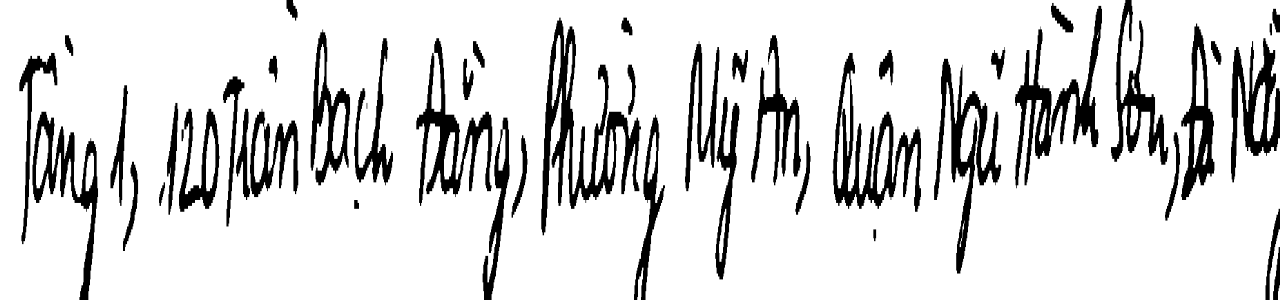 Tầng 1, 120 Trần Bạch Đằng, Phường Mỹ An, Quận Ngũ Hành Sơn, Đà Nẵng